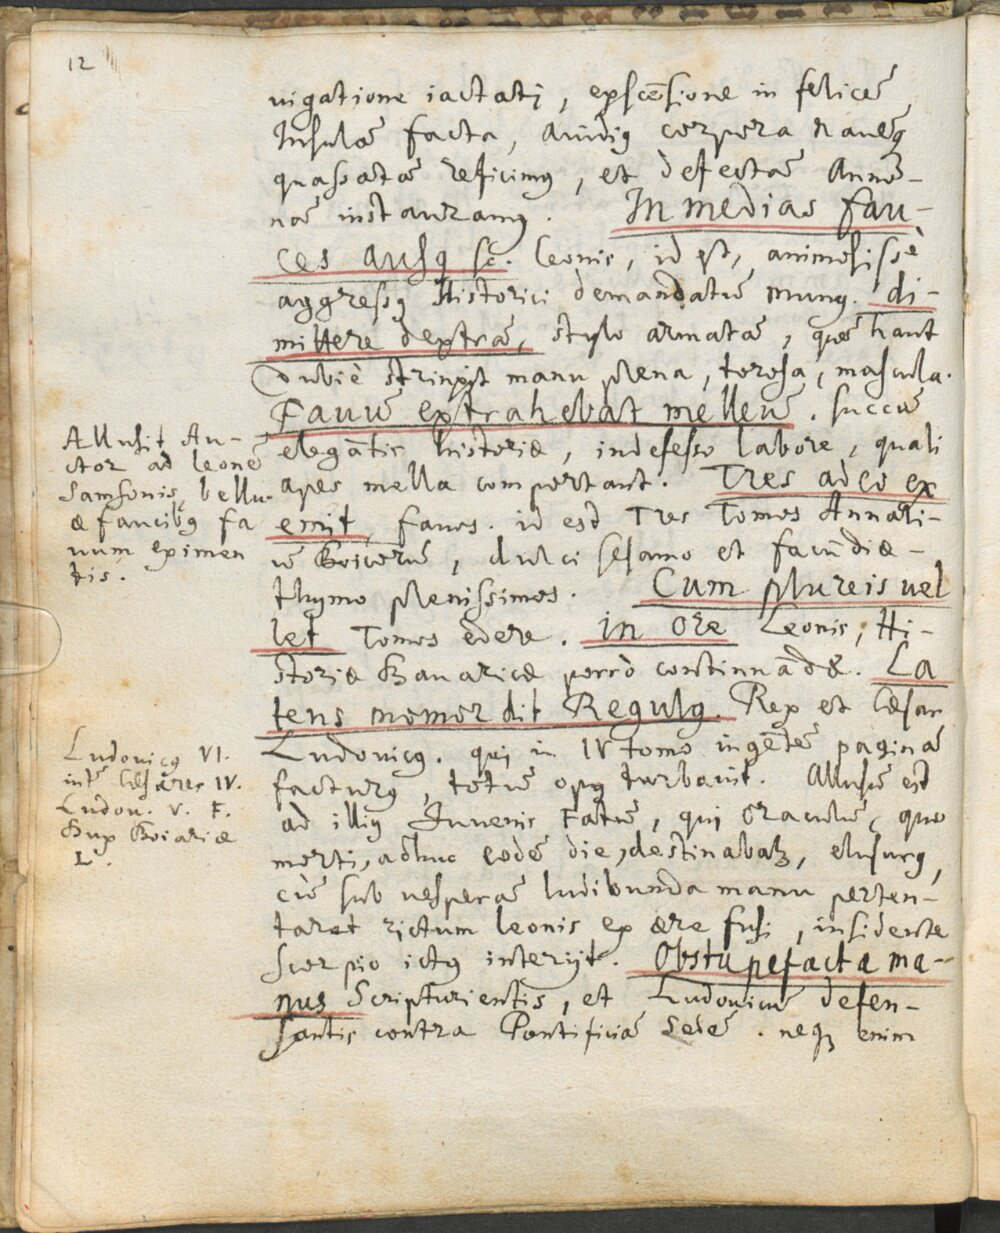 12
uigatione iactatj, exscēsione in felicē
Insulā facta, auidiꝰ corpora nauēq́
quassatā reficimꝰ, et defectā Anno-
nā instauramꝰ. In medias fau-
ces ausꝰ sc. Leonis, id est, animosissè
aggressꝰ Historici demandatū munꝰ. di-
mittere dextrā, stylo armatā, quē haut
dubiè strinxit manu plena, torosa, mascula.
Fauū extrahebat melleū. succū
elegātis historiæ, indefesso labore, quali
apes mella comportant. Tres adeo ex
emit, fauos. id est Tres Tomos Annali-
ū Boicorū, dulci sesamo et facūdiæ-
thymo plenissimos. Cum plureis uel
let Tomos edere. in Ore Leonis, Hi-
storiæ Bauaricæ porrò continuādæ. La
tens momordit Regulꝰ. Rex et Cæsar
Ludonicꝰ. qui in IV tomo ingētē paginā
facturꝰ, totū opꝰ turbauit. Allusū est
ad illiꝰ Iuuenis Fatū, qui Oraculū, quo
morti, adhuc eodē die, destinabatꝫ, elusurꝰ,
cū sub uesperā ludibunda manu perten-
taret rictum leonis ex ære fusi, insidente
scorpio ictꝰ interijt. Obstupefacta ma-
nus Scripturientis, et Ludouicū defen-
santis contra Pontificiā Sedē. neqꝫ enim
Allusit Au-
ctor ad leonē
Samsonis, bellu-
æ faucibꝰ fa
uum eximen
tis.
Ludouicꝰ VI.
int̄ Cæsares IV.
Ludou. V. F.
Dux Boiariæ
L.